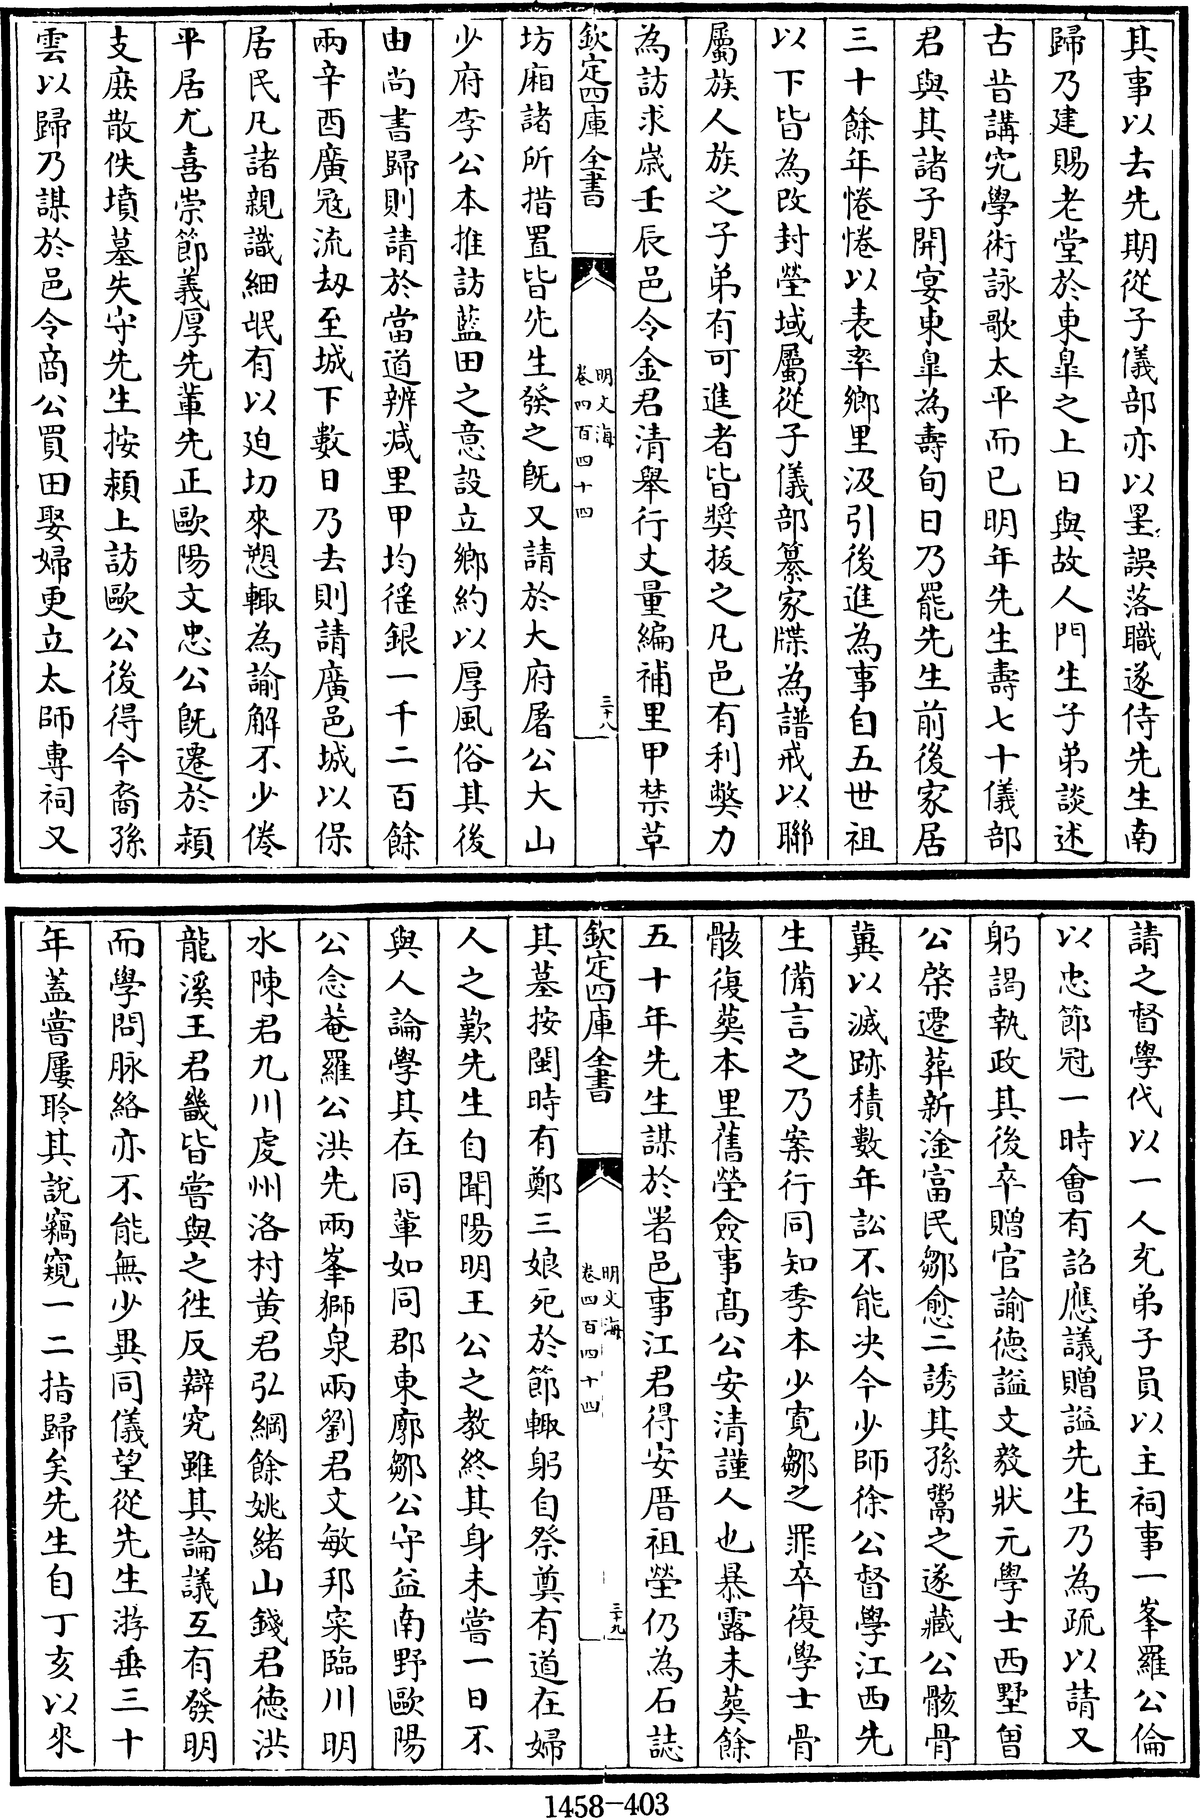 其事以去先期從子儀部亦以罣誤落職遂侍先生南
歸乃建賜老堂於東臯之上日與故人門生子弟談述
古昔講究學術詠歌太平而已明年先生壽七十儀部
君與其諸子開宴東臯為壽旬日乃罷先生前後家居
三十餘年惓惓以表率鄉里汲引後進為事自五世祖
以下皆為改封塋域屬從子儀部纂家牒為譜戒以聯
屬族人族之子弟有可進者皆奬拔之凡邑有利弊力
為訪求嵗壬辰邑令金君清舉行丈量編補里甲禁草
欽定四庫全書
明文海
卷四百四十四
三十八
坊廂諸所措置皆先生發之旣又請於大府屠公大山
少府李公本推訪藍田之意設立鄉約以厚風俗其後
由尚書歸則請於當道辨減里甲均徭銀一千二百餘
兩辛酉廣冦流刼至城下數日乃去則請廣邑城以保
居民凡諸親識細氓有以廹切來愬輙為諭解不少倦
平居尤喜崇節義厚先輩先正歐陽文忠公旣遷於潁
支庶散佚墳墓失守先生按潁上訪歐公後得今裔孫
雲以歸乃謀於邑令商公買田娶婦更立太師專祠又
請之督學代以一人充弟子員以主祠事一峯羅公倫
以忠節冠一時會有詔應議贈諡先生乃為疏以請又
躬謁執政其後卒贈官諭德諡文毅狀元學士西墅曾
公棨遷葬新淦富民鄒愈二誘其孫鬻之遂藏公骸骨
冀以滅跡積數年訟不能决今少師徐公督學江西先
生備言之乃案行同知季本少寛鄒之罪卒復學士骨
骸復葬本里舊塋僉事髙公安清謹人也暴露未葬餘
五十年先生謀於署邑事江君得安厝祖塋仍為石誌
欽定四庫全書
明文海
卷四百四十四
三十九
其墓按閩時有鄭三娘死於節輙躬自祭奠有道在婦
人之歎先生自聞陽明王公之教終其身未嘗一日不
與人論學其在同輩如同郡東廓鄒公守益南野歐陽
公念菴羅公洪先兩峯獅泉兩劉君文敏邦寀臨川明
水陳君九川虔州洛村黄君弘綱餘姚緒山錢君德洪
龍溪王君畿皆嘗與之徃反辯究雖其論議互有發明
而學問脉絡亦不能無少異同儀望從先生游垂三十
年蓋嘗屢聆其說竊窺一二指歸矣先生自丁亥以來
1458-403